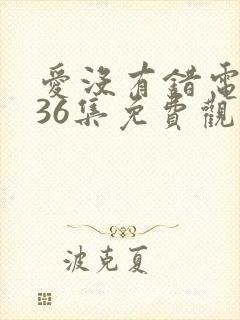 愛沒有錯電
36集免費觀
波克夏